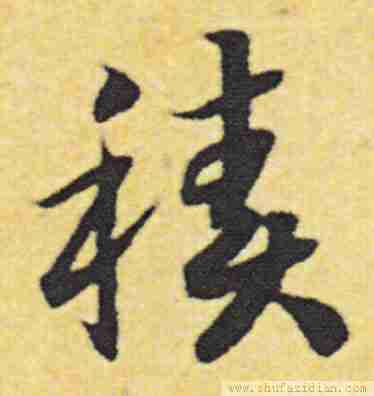 積
www.shufazidian.com